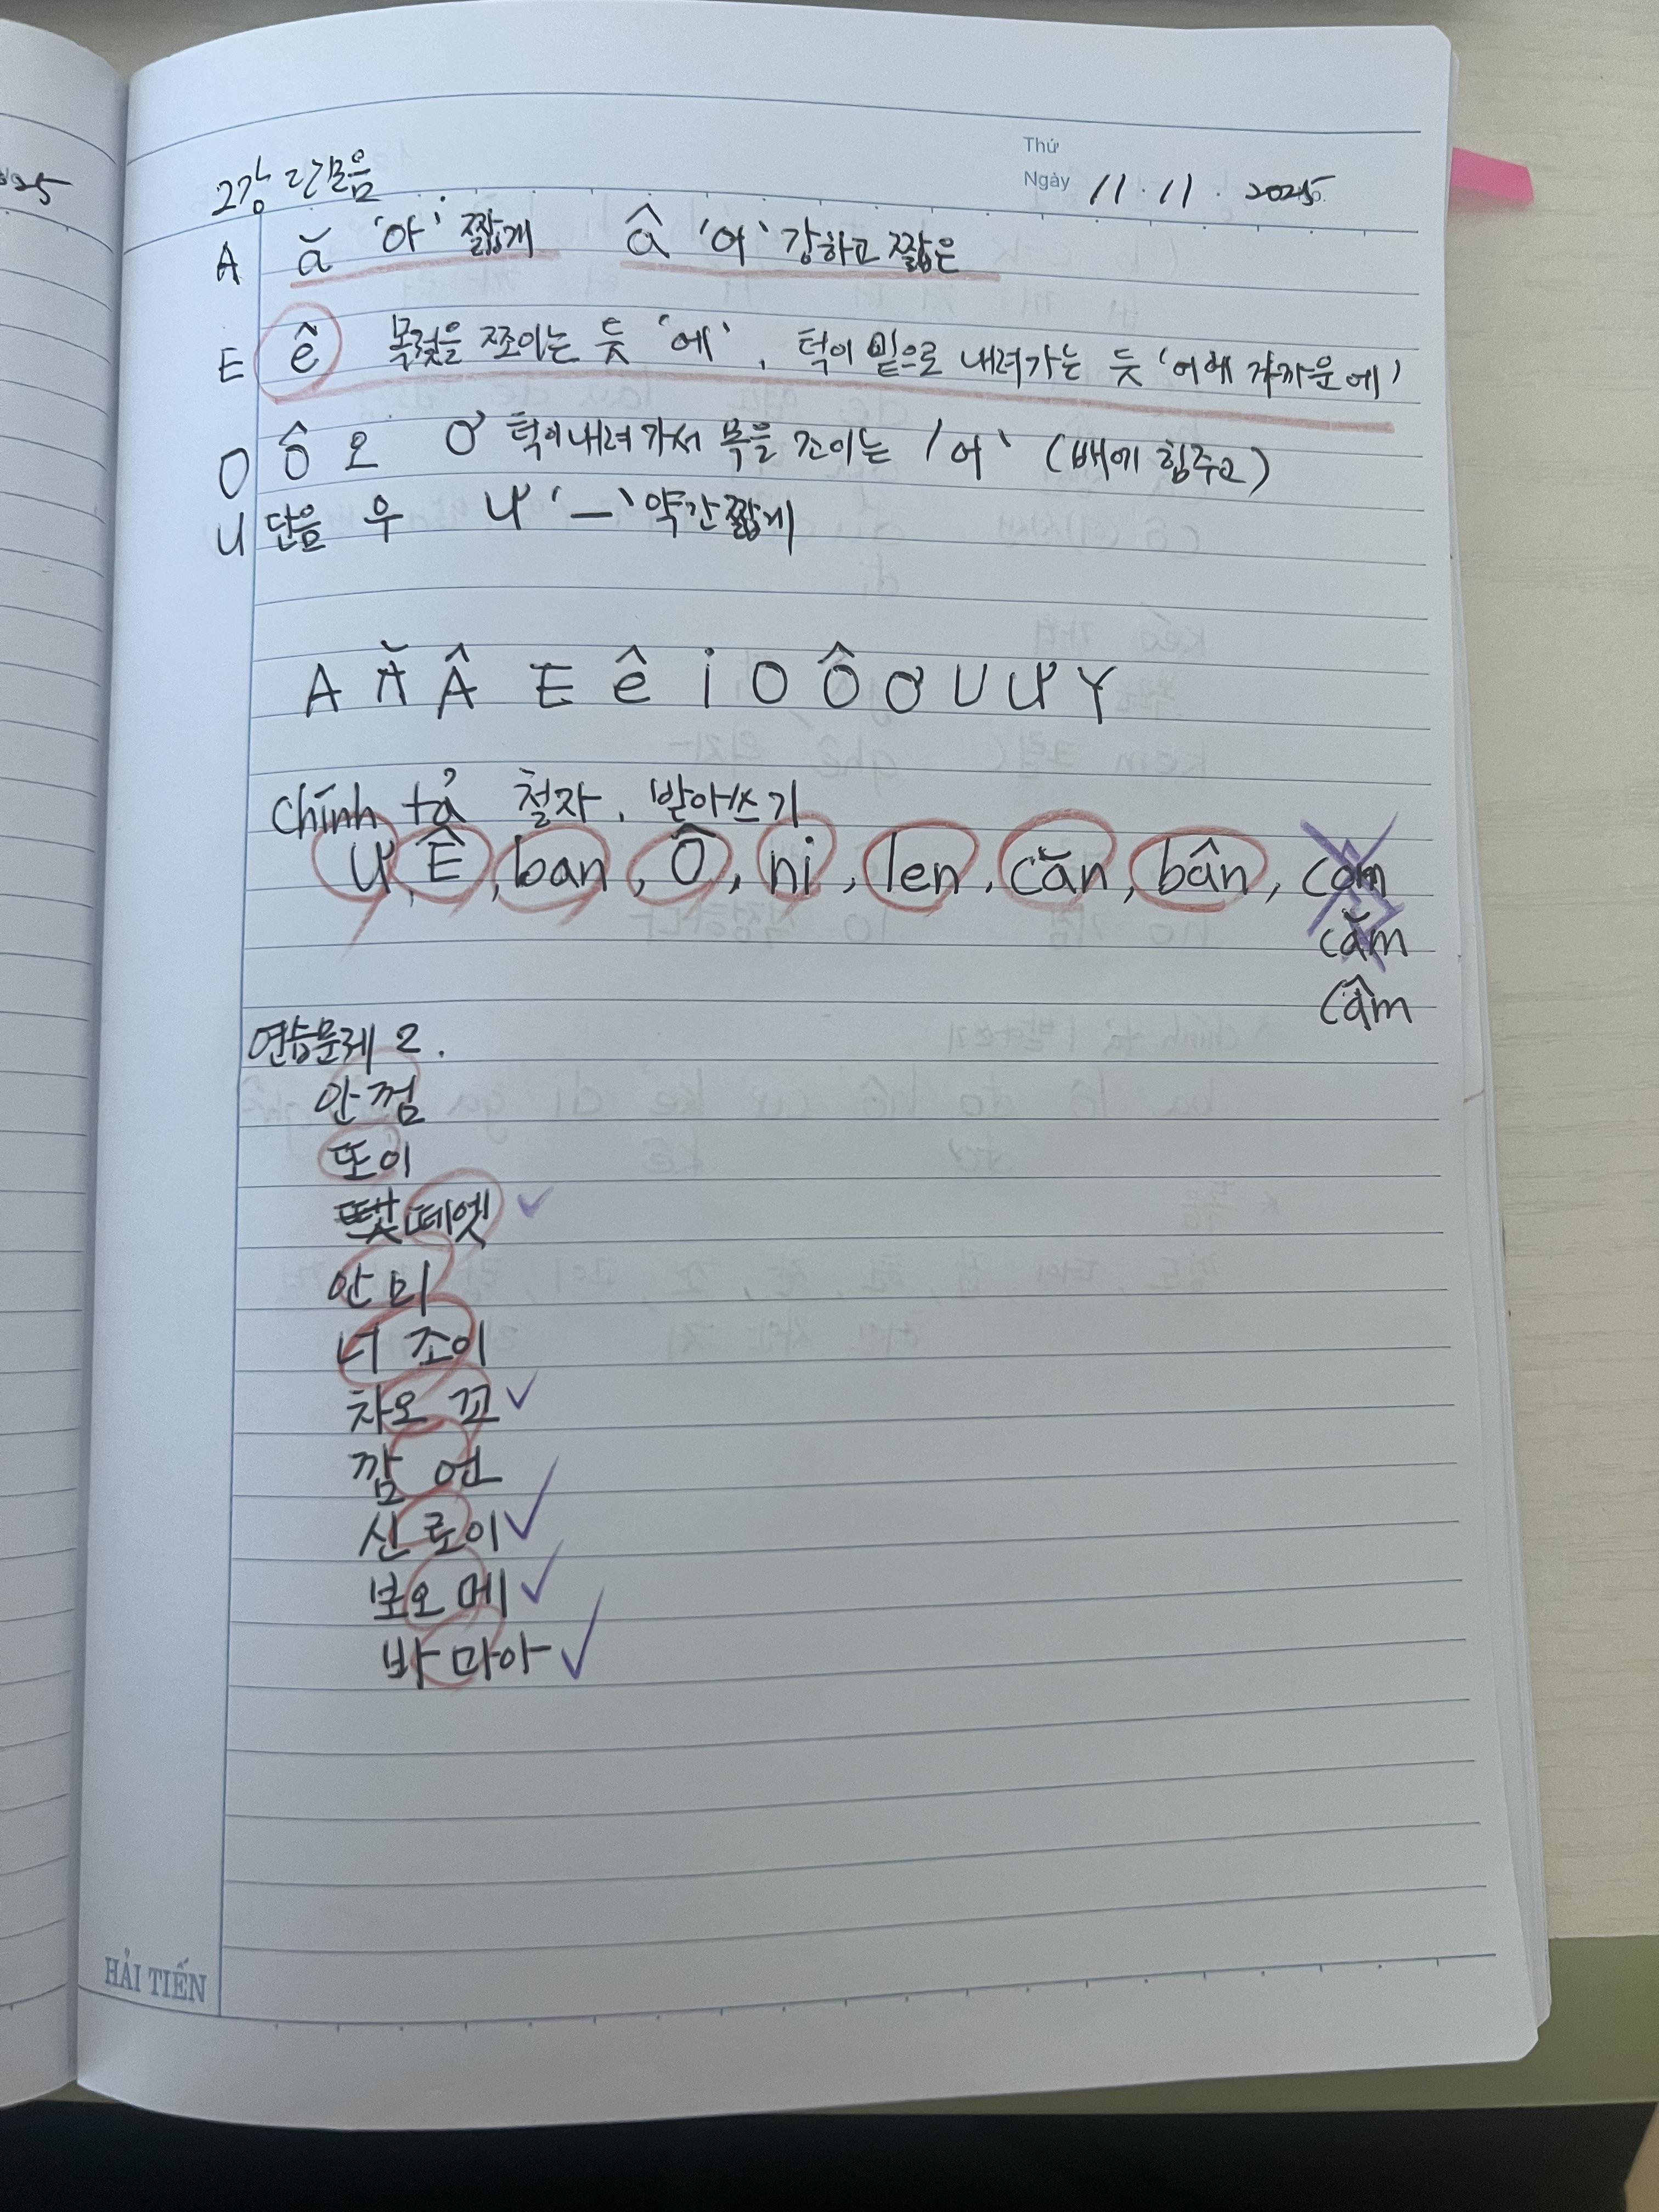 25
Thứ
2강 단모음
Ngày 11.11.2025
A ă '아' 짧게 â '어' 강하고 짧은
E ê 목젖을 쪼이는 듯 '에', 턱이 밑으로 내려가는 듯 '어에 가까운 에'
O ô 오 ơ 턱이 내려가서 목을 조이는 '어' (배에 힘주고)
U 단음 우 ư 'ㅡ' 약간 짧게
A Ă Â E ê i O Ô Ơ U Ư Y
Chính tả 철자, 받아쓰기
Ư, Ê, ban, Ô, ni, len, căn, bân,
căm
câm
연습문제 2.
안껌
또이
떼엣
안 미
너 조이
차오 꼬
깜 언
신 로이
보오 메
바 마아
HẢI TIẾN